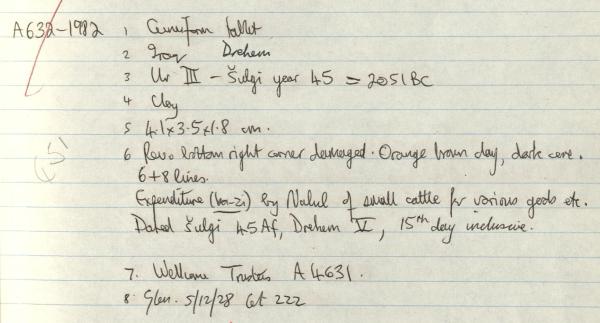 A632-1982 1 Cuneiform tablet
2 Iraq Drehem
3 Ur III - Šulgi year 45 = 2051 BC
4 Clay
5 4.1 x 3.5 x 1.8 cm.
6 Revs bottom right corner damaged. Orange brown clay, dark core.
6+8 lines.
Expenditure (ba-zi) by Nalul of small cattle for various gods etc.
Dated Šulgi 45 Af, Drehem V, 15th day inclusive.
7. Wellcome Trustees A 4631.
8 Glen. 5/12/28 lot 222